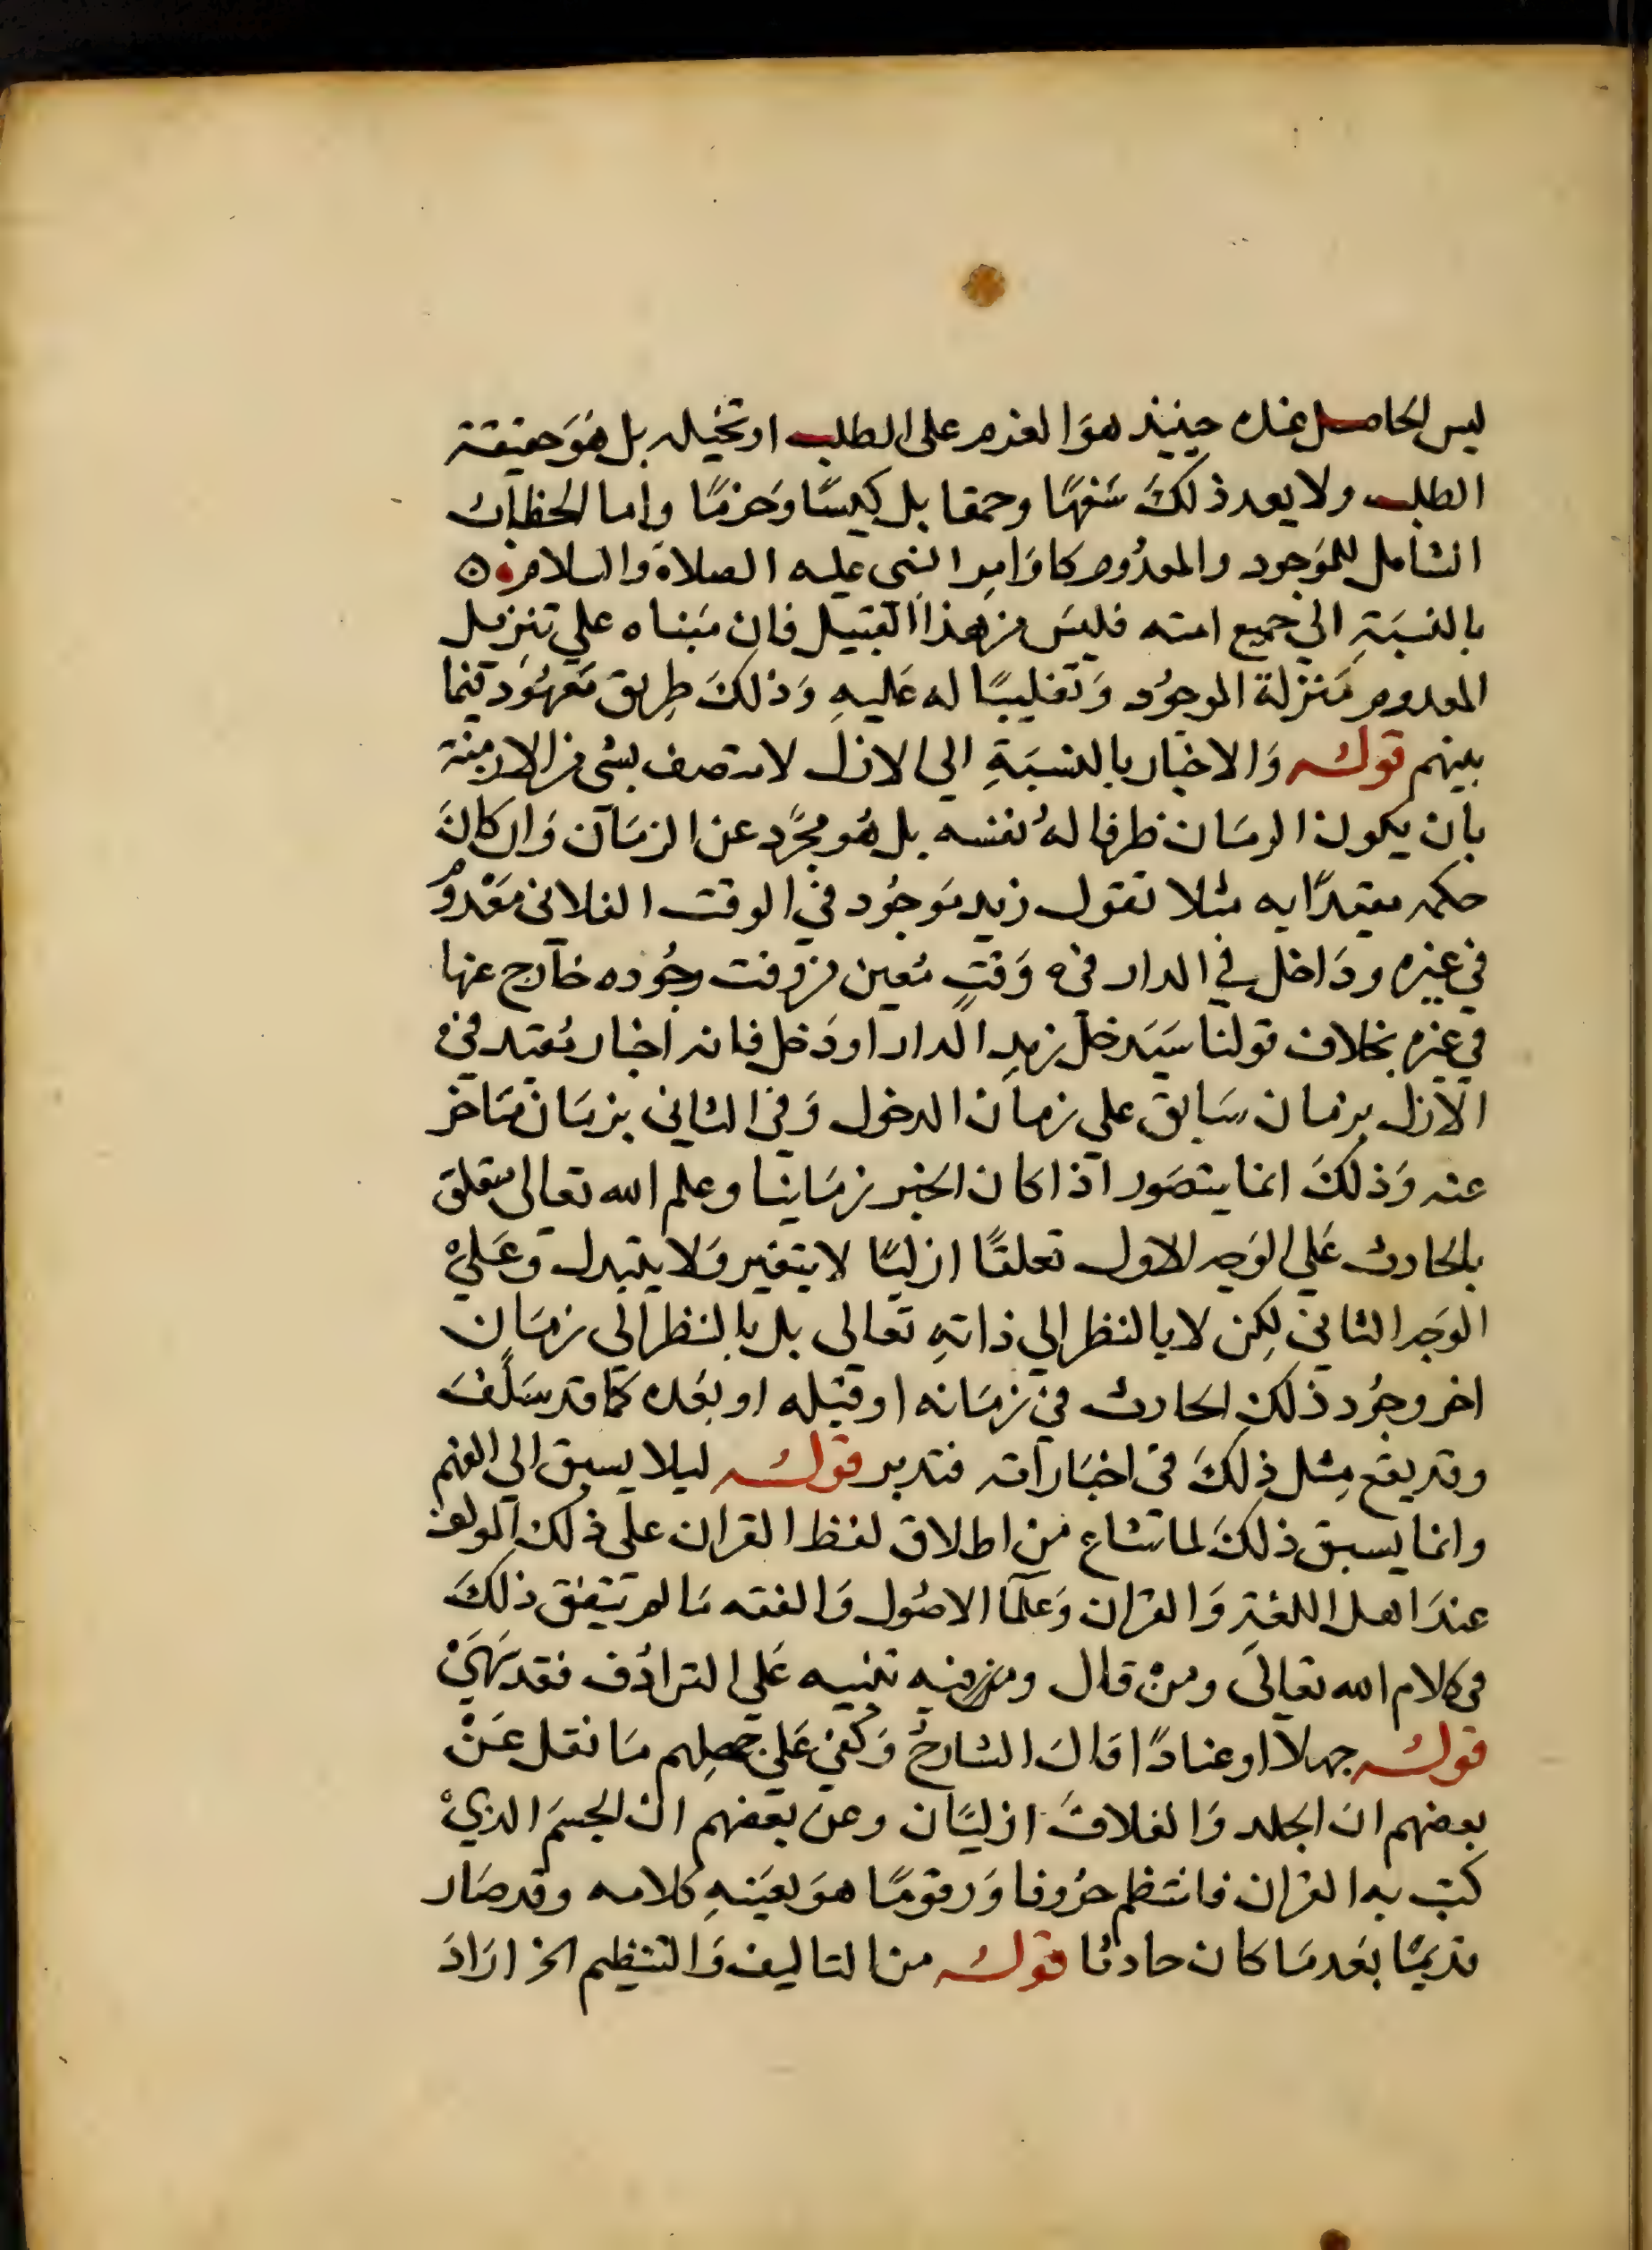 ليس الحاصل عنده حينيذ هو العزم على الطلب او تخيله بل هو حقيقة
الطلب ولا يعد ذلك سفهًا وحمقا بل كيسًا وحزمًا واما الخطاب
الشامل للموجود والمعدوم كاوامر النبي عليه الصلاة والسلام
بالنسبة الي جميع امته فليس من هذا القبيل فان مبناه علي تنزيل
المعدوم منزلة الموجود وتغليبًا له عليه وذلك طريق معهود فيما
بينهم قوله والاخبار بالنسبة الي الازل لا يتصف بشي من الازمنة
بان يكون الزمان ظرفا له نفسه بل هو مجرّد عن الزمان وان كان
حكمه مقيدًا به مثلا تقول زيد موجود في الوقت الفلاني معدوم
في غيره وداخل في الدار في وقتٍ معين من وقت وجوده خارج عنها
في غيره بخلاف قولنا سيدخل زيد الدار او دخل فانه اخبار مقيد في
الازل بزمان سابق علي زمان الدخول وفي الثاني بزمان متاخر
عنه وذلك انما يتصور اذا كان الخبر زمانيا وعلم الله تعالى متعلق
بالحادث علي الوجه الاول تعلقًا ازليًا لا يتغير ولا يتبدل وعلي
الوجه الثاني لكن لا بالنظر الي ذاته تعالي بل بالنظر الي زمان
اخر وجود ذلك الحادث في زمانه او قبله او بعده كما قد سلف
وقد يقع مثل ذلك في اخباراته فتدبر قوله ليلا يسبق الي الفهم
وانما يسبق ذلك لما شاع من اطلاق لفظ القران علي ذلك المولف
عند اهل اللغة والقران وعلما الاصول والفقه ما لم يتفق ذلك
في كلام الله تعالي ومن قال ومن فيه تنبيه علي الترادف فقد
قوله جهلا او عنادًا قال الشارح وكفي علي جهلهم ما نقل عن
بعضهم ان الجلد والغلاف ازليان وعن بعضهم ان الجسم الذي
كتب به القران فانتظم حروفا ورقومًا هو بعينه كلامه وقد صار
قديمًا بعد ما كان حادثا قوله من التاليف والتنظيم الخ اراد